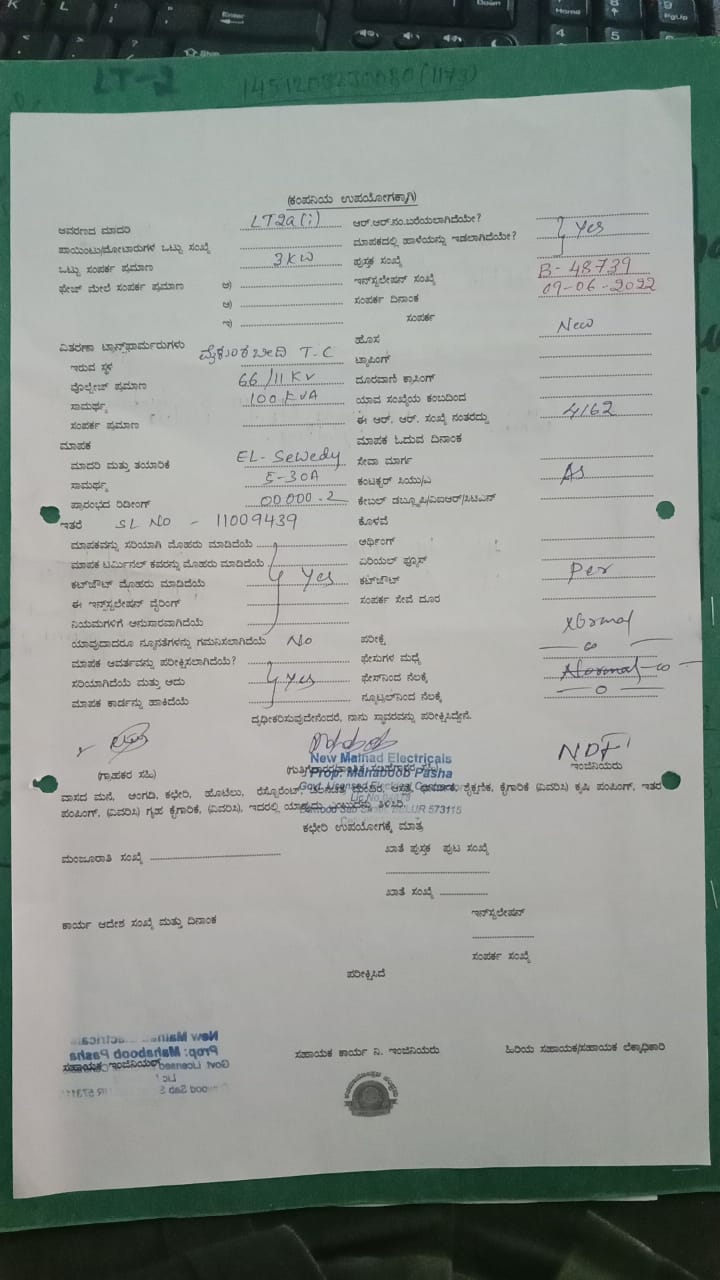 LT-2
(ಕಂಪನಿಯ ಉಪಯೋಗಕ್ಕಾಗಿ)
ಆವರಣದ ಮಾದರಿ LT2a(i) ಆರ್.ಆರ್.ನಂ.ಬರೆಯಲಾಗಿದೆಯೇ?
ಪಾಯಿಂಟು/ಮೋಟಾರುಗಳ ಒಟ್ಟು ಸಂಖ್ಯೆ ಮಾಪಕದಲ್ಲಿ ಹಾಳೆಯನ್ನು ಇಡಲಾಗಿದೆಯೇ? Yes
ಒಟ್ಟು ಸಂಪರ್ಕ ಪ್ರಮಾಣ 3KW ಪುಸ್ತಕ ಸಂಖ್ಯೆ
ಫೇಜ್ ಮೇಲೆ ಸಂಪರ್ಕ ಪ್ರಮಾಣ ಇನ್‌ಸ್ಟಲೇಷನ್ ಸಂಖ್ಯೆ B-48739
ಸಂಪರ್ಕ ದಿನಾಂಕ 09-06-2022
ಸಂಪರ್ಕ
ವಿತರಣಾ ಟ್ರಾನ್ಸ್‌ಫಾರ್ಮರುಗಳು ಹೊಸ New
ಇರುವ ಸ್ಥಳ T.C ಟ್ಯಾಪಿಂಗ್
ವೊಲ್ಟೇಜ್ ಪ್ರಮಾಣ 66/11KV ದೂರವಾಣಿ ಕ್ರಾಸಿಂಗ್
ಸಾಮರ್ಥ್ಯ 100KVA ಯಾವ ಸಂಖ್ಯೆಯ ಕಂಬದಿಂದ
ಸಂಪರ್ಕ ಪ್ರಮಾಣ ಈ ಆರ್. ಆರ್. ಸಂಖ್ಯೆ ನಂತರದ್ದು 4162
ಮಾಪಕ ಮಾಪಕ ಓದುವ ದಿನಾಂಕ
ಮಾದರಿ ಮತ್ತು ತಯಾರಿಕೆ EL-Sewedy ಸೇವಾ ಮಾರ್ಗ
ಸಾಮರ್ಥ್ಯ 5-30A ಕಂಟಕ್ಟರ್ ಸಿಯು/ಎ As
ಪ್ರಾರಂಭದ ರಿಡೀಂಗ್ 00000.2 ಕೇಬಲ್ ಡಬ್ಲ್ಯೂಪಿ/ವಿಐಆರ್/ಸಿಟಿಎಸ್
ಇತರೆ SL NO - 11009439 ಕೊಳವೆ
ಮಾಪಕವನ್ನು ಸರಿಯಾಗಿ ಮೊಹರು ಮಾಡಿದೆಯೆ ಅರ್ಥಿಂಗ್
ಮಾಪಕ ಟರ್ಮಿನಲ್ ಕವರನ್ನು ಮೊಹರು ಮಾಡಿದೆಯೆ ಏರಿಯಲ್ ಫ್ಯೂಸ್
ಕಟ್‌ಔಟ್ ಮೊಹರು ಮಾಡಿದೆಯೆ Yes ಕಟ್‌ಔಟ್ Per
ಈ ಇನ್‌ಸ್ಟಲೇಷನ್ ವೈರಿಂಗ್ ಸಂಪರ್ಕ ಸೇವೆ ದೂರ
ನಿಯಮಗಳಿಗೆ ಅನುಸಾರವಾಗಿದೆಯೆ
ಯಾವುದಾದರೂ ನ್ಯೂನತೆಗಳನ್ನು ಗಮನಿಸಲಾಗಿದೆಯೆ No ಪರೀಕ್ಷೆ
ಮಾಪಕ ಆವರ್ತವನ್ನು ಪರೀಕ್ಷಿಸಲಾಗಿದೆಯೆ? ಫೇಸುಗಳ ಮಧ್ಯೆ ∞
ಸರಿಯಾಗಿದೆಯೆ ಮತ್ತು ಅದು Yes ಫೇಸ್‌ನಿಂದ ನೆಲಕ್ಕೆ ∞
ಮಾಪಕ ಕಾರ್ಡನ್ನು ಹಾಕಿದೆಯೆ ನ್ಯೂಟ್ರಲ್‌ನಿಂದ ನೆಲಕ್ಕೆ 0
ದೃಢೀಕರಿಸುವುದೇನೆಂದರೆ, ನಾನು ಸ್ಥಾವರವನ್ನು ಪರೀಕ್ಷಿಸಿದ್ದೇನೆ.
New Malnad Electricals
Prop: Mahaboob Pasha
(ಗ್ರಾಹಕರ ಸಹಿ) ಇಂಜಿನಿಯರು
ವಾಸದ ಮನೆ, ಅಂಗಡಿ, ಕಛೇರಿ, ಹೊಟೆಲು, ರೆಸ್ಟೊರೆಂಟ್, ಶೈಕ್ಷಣಿಕ, ಕೃಷಿ ಪಂಪಿಂಗ್, ಇತರ
ಪಂಪಿಂಗ್, (ವಿವರಿಸಿ) ಗೃಹ ಕೈಗಾರಿಕೆ, (ವಿವರಿಸಿ), ಇದರಲ್ಲಿ BELUR 573115
ಕಛೇರಿ ಉಪಯೋಗಕ್ಕೆ ಮಾತ್ರ
ಮಂಜೂರಾತಿ ಸಂಖ್ಯೆ ಖಾತೆ ಪುಸ್ತಕ ಪುಟ ಸಂಖ್ಯೆ
ಖಾತೆ ಸಂಖ್ಯೆ
ಕಾರ್ಯ ಆದೇಶ ಸಂಖ್ಯೆ ಮತ್ತು ದಿನಾಂಕ ಇನ್‌ಸ್ಟಲೇಷನ್
ಸಂಪರ್ಕ ಸಂಖ್ಯೆ
ಪರೀಕ್ಷಿಸಿದೆ
ಸಹಾಯಕ ಇಂಜಿನಿಯರ್ ಸಹಾಯಕ ಕಾರ್ಯ ನಿ. ಇಂಜಿನಿಯರು ಹಿರಿಯ ಸಹಾಯಕ/ಸಹಾಯಕ ಲೆಕ್ಕಾಧಿಕಾರಿ